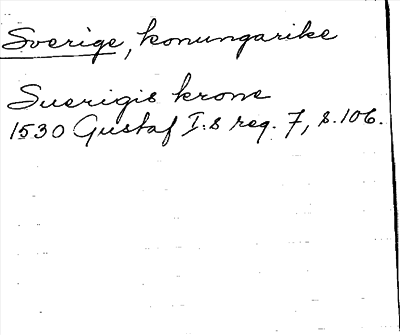 Sverige, konungarike
Suerigis krone
1530 Gustaf I:s reg. 7, s. 106.